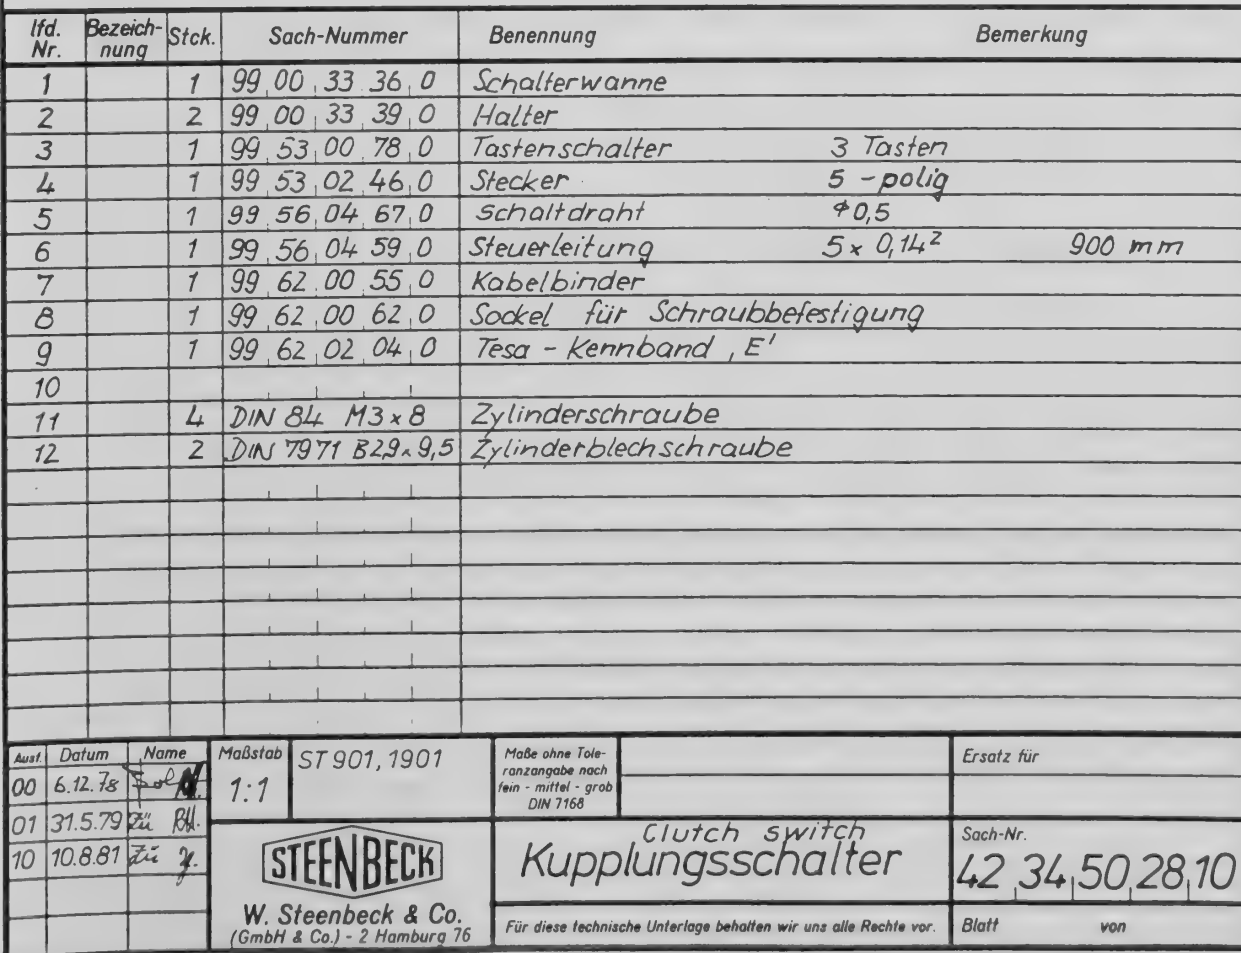 lfd. Nr. Bezeich-nung Stck. Sach-Nummer Benennung Bemerkung
1 1 99 00 33 36 0 Schalterwanne
2 2 99 00 33 39 0 Halter
3 1 99 53 00 78 0 Tastenschalter 3 Tasten
4 1 99 53 02 46 0 Stecker 5 - polig
5 1 99 56 04 67 0 Schaltdraht ⌀ 0,5
6 1 99 56 04 59 0 Steuerleitung 5 x 0,14² 900 mm
7 1 99 62 00 55 0 Kabelbinder
8 1 99 62 00 62 0 Sockel für Schraubbefestigung
9 1 99 62 02 04 0 Tesa - Kennband ‚E'
10
11 4 DIN 84 M3 x 8 Zylinderschraube
12 2 DIN 7971 B2,9 x 9,5 Zylinderblechschraube
Ausf. Datum Name
00 6.12.78
01 31.5.79 Zü RH.
10 10.8.81 Zü
Maßstab
1:1
ST 901, 1901
Maße ohne Tole-
ranzangabe nach
fein - mittel - grob
DIN 7168
Ersatz für
STEENBECK
W. Steenbeck & Co.
(GmbH & Co.) - 2 Hamburg 76
Clutch switch
Kupplungsschalter
Für diese technische Unterlage behalten wir uns alle Rechte vor.
Sach-Nr.
42 34 50 28 10
Blatt von